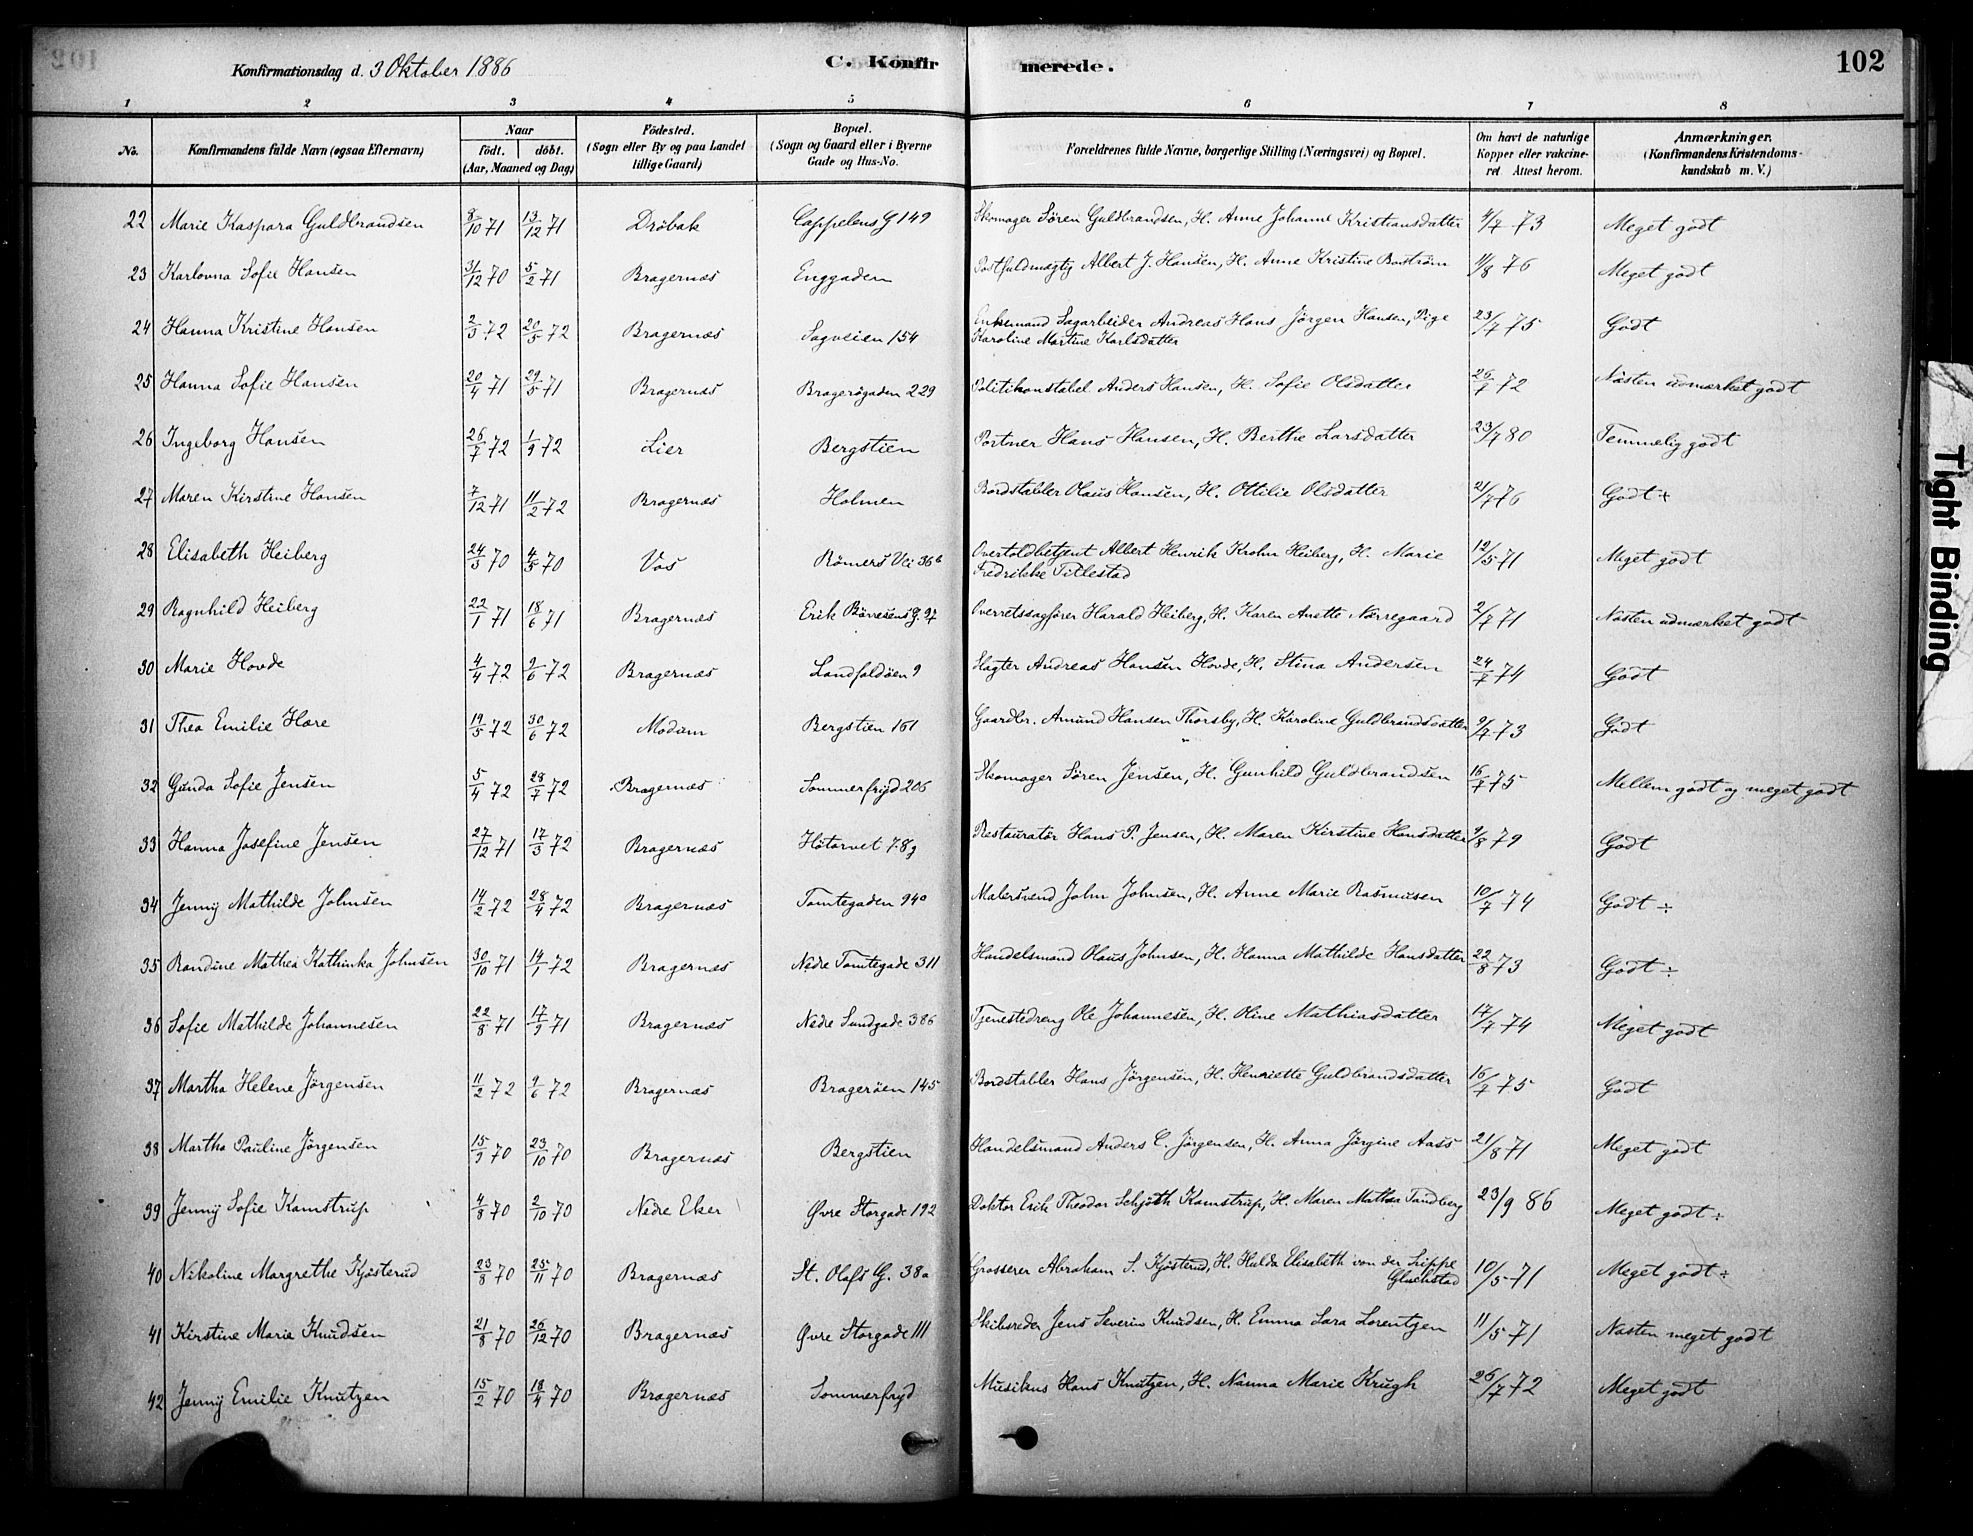 Konfirmationsdag d. 3 Oktober 1886 C. Konfirmerede. 102
1 2 3 4 5 6 7 8
No. Konfirmandens fulde Navn (ogsaa Efternavn) Naar födt. döbt. (Aar, Maaned og Dag) Födested. (Sogn eller By og paa Landet tillige Gaard) Bopæl. (Sogn og Gaard eller i Byerne Gade og Hus-No. Forældrenes fulde Navne, borgerlige Stilling (Næringsvei) og Bopæl. Om havt de naturlige Kopper eller vakcineret Attest herom. Anmærkninger. (Konfirmandens Kristendomskundskab m. V.)
22 Marie Kaspara Guldbrandsen 8/10 71 13/12 71 Dröbak Cappelens G 149 Skomager Sören Guldbrandsen, H. Anne Johanne Kristiansdatter 4/7 73 Meget godt
23 Karlovna Sofie Hansen 31/12 70 5/2 71 Bragernæs Enggaden Postfuldmægtig Albert J. Hansen, H. Anne Kristine Boström 11/8 76 Meget godt
24 Hanna Kristine Hansen 2/3 72 20/5 72 Bragernæs Sagveien 154 Enkemand Sagarbeider Andreas Hans Jörgen Hansen, Pige
Karoline Martine Karlsdatter 23/7 75 Godt
25 Hanna Sofie Hansen 20/4 71 29/5 71 Bragernæs Bragerögaden 229 Politikonstabel Anders Hansen, H. Sofie Olsdatter 26/7 72 Næsten udmærket godt
26 Ingeborg Hansen 26/7 72 1/9 72 Lier Bergstien Portner Hans Hansen, H. Berthe Larsdatter 23/7 80 Temmelig godt
27 Maren Kirstine Hansen 7/12 71 11/2 72 Bragernæs Holmen Bordstabler Olaus Hansen, H. Ottilie Olsdatter 21/7 76 Godt +
28 Elisabeth Heiberg 24/3 70 4/5 70 Vos Römers Vei 36b Overtoldbetjent Albert Henrik Krohn Heiberg, H. Marie
Fredrikke Titlestad 12/5 71 Meget godt
29 Ragnhild Heiberg 22/1 71 18/6 71 Bragernæs Erik Börresens G. 27 Overretssagförer Harald Heiberg, H. Karen Anette Nørregaard 2/7 71 Næsten udmærket godt
30 Marie Hovde 4/4 72 9/6 72 Bragernæs Landfaldöen 9 Slagter Andreas Hansen Hovde, H. Stina Andersen 24/7 74 Godt
31 Thea Emilie Hare 19/5 72 30/6 72 Modum Bergstien 161 Gaardbr. Amund Hansen Thorsby, H. Karoline Guldbrandsdatter 9/7 73 Godt
32 Gunda Sofie Jensen 5/4 72 28/7 72 Bragernæs Sommerfryd 206 Skomager Sören Jensen, H. Gunhild Guldbrandsen 16/7 75 Mellem godt og meget godt
33 Hanna Josefine Jensen 27/12 71 17/3 72 Bragernæs Hötorvet 78g Restauratör Hans P. Jensen, H. Maren Kirstine Hansdatter 9/8 79 Godt
34 Jenny Mathilde Johnsen 14/2 72 28/4 72 Bragernæs Tomtegaden 940 Malersvend John Johnsen, H. Anne Marie Rasmusen 10/7 74 Godt ÷
35 Randine Mathea Kathinka Johnsen 30/10 71 14/1 72 Bragernæs Nedre Tomtegade 311 Handelsmand Olaus Johnsen, H. Hanna Mathilde Hansdatter 22/8 73 Godt ÷
36 Sofie Mathilde Johannesen 22/8 71 17/9 71 Bragernæs Nedre Sundgade 386 Tjenestedreng Ole Johannesen, H. Oline Mathiasdatter 17/7 74 Meget godt
37 Martha Helene Jörgensen 11/2 72 9/6 72 Bragernæs Brageröen 145 Bordstabler Hans Jörgensen, H. Henriette Guldbrandsdatter 16/7 75 Godt
38 Martha Pauline Jörgensen 15/9 70 23/10 70 Bragernæs Bergstien Handelsmand Anders C. Jörgensen, H. Anna Jörgine Aass 21/8 71 Meget godt
39 Jenny Sofie Kamstrup 4/8 70 2/10 70 Nedre Eker Øvre Storgade 192 Doktor Erik Theodor Schjöth Kamstrup, H. Maren Mathea Tandberg 23/9 86 Meget godt ÷
40 Nikoline Margrethe Kjösterud 23/8 70 25/11 70 Bragernæs St. Olafs G. 38a Grosserer Abraham S. Kjösterud, H. Hulda Elisabeth von der Lippe
Gluckstad 10/5 71 Meget godt ÷
41 Kirstine Marie Knudsen 21/8 70 26/12 70 Bragernæs Øvre Storgade 111 Skibsreder Jens Severin Knudsen, H. Emma Sara Lorentzen 11/5 71 Næsten meget godt
42 Jenny Emilie Knutzen 15/2 70 18/4 70 Bragernæs Sommerfryd Musikus Hans Knutzen, H. Nanna Marie Krugh 26/7 72 Meget godt
Tight Binding